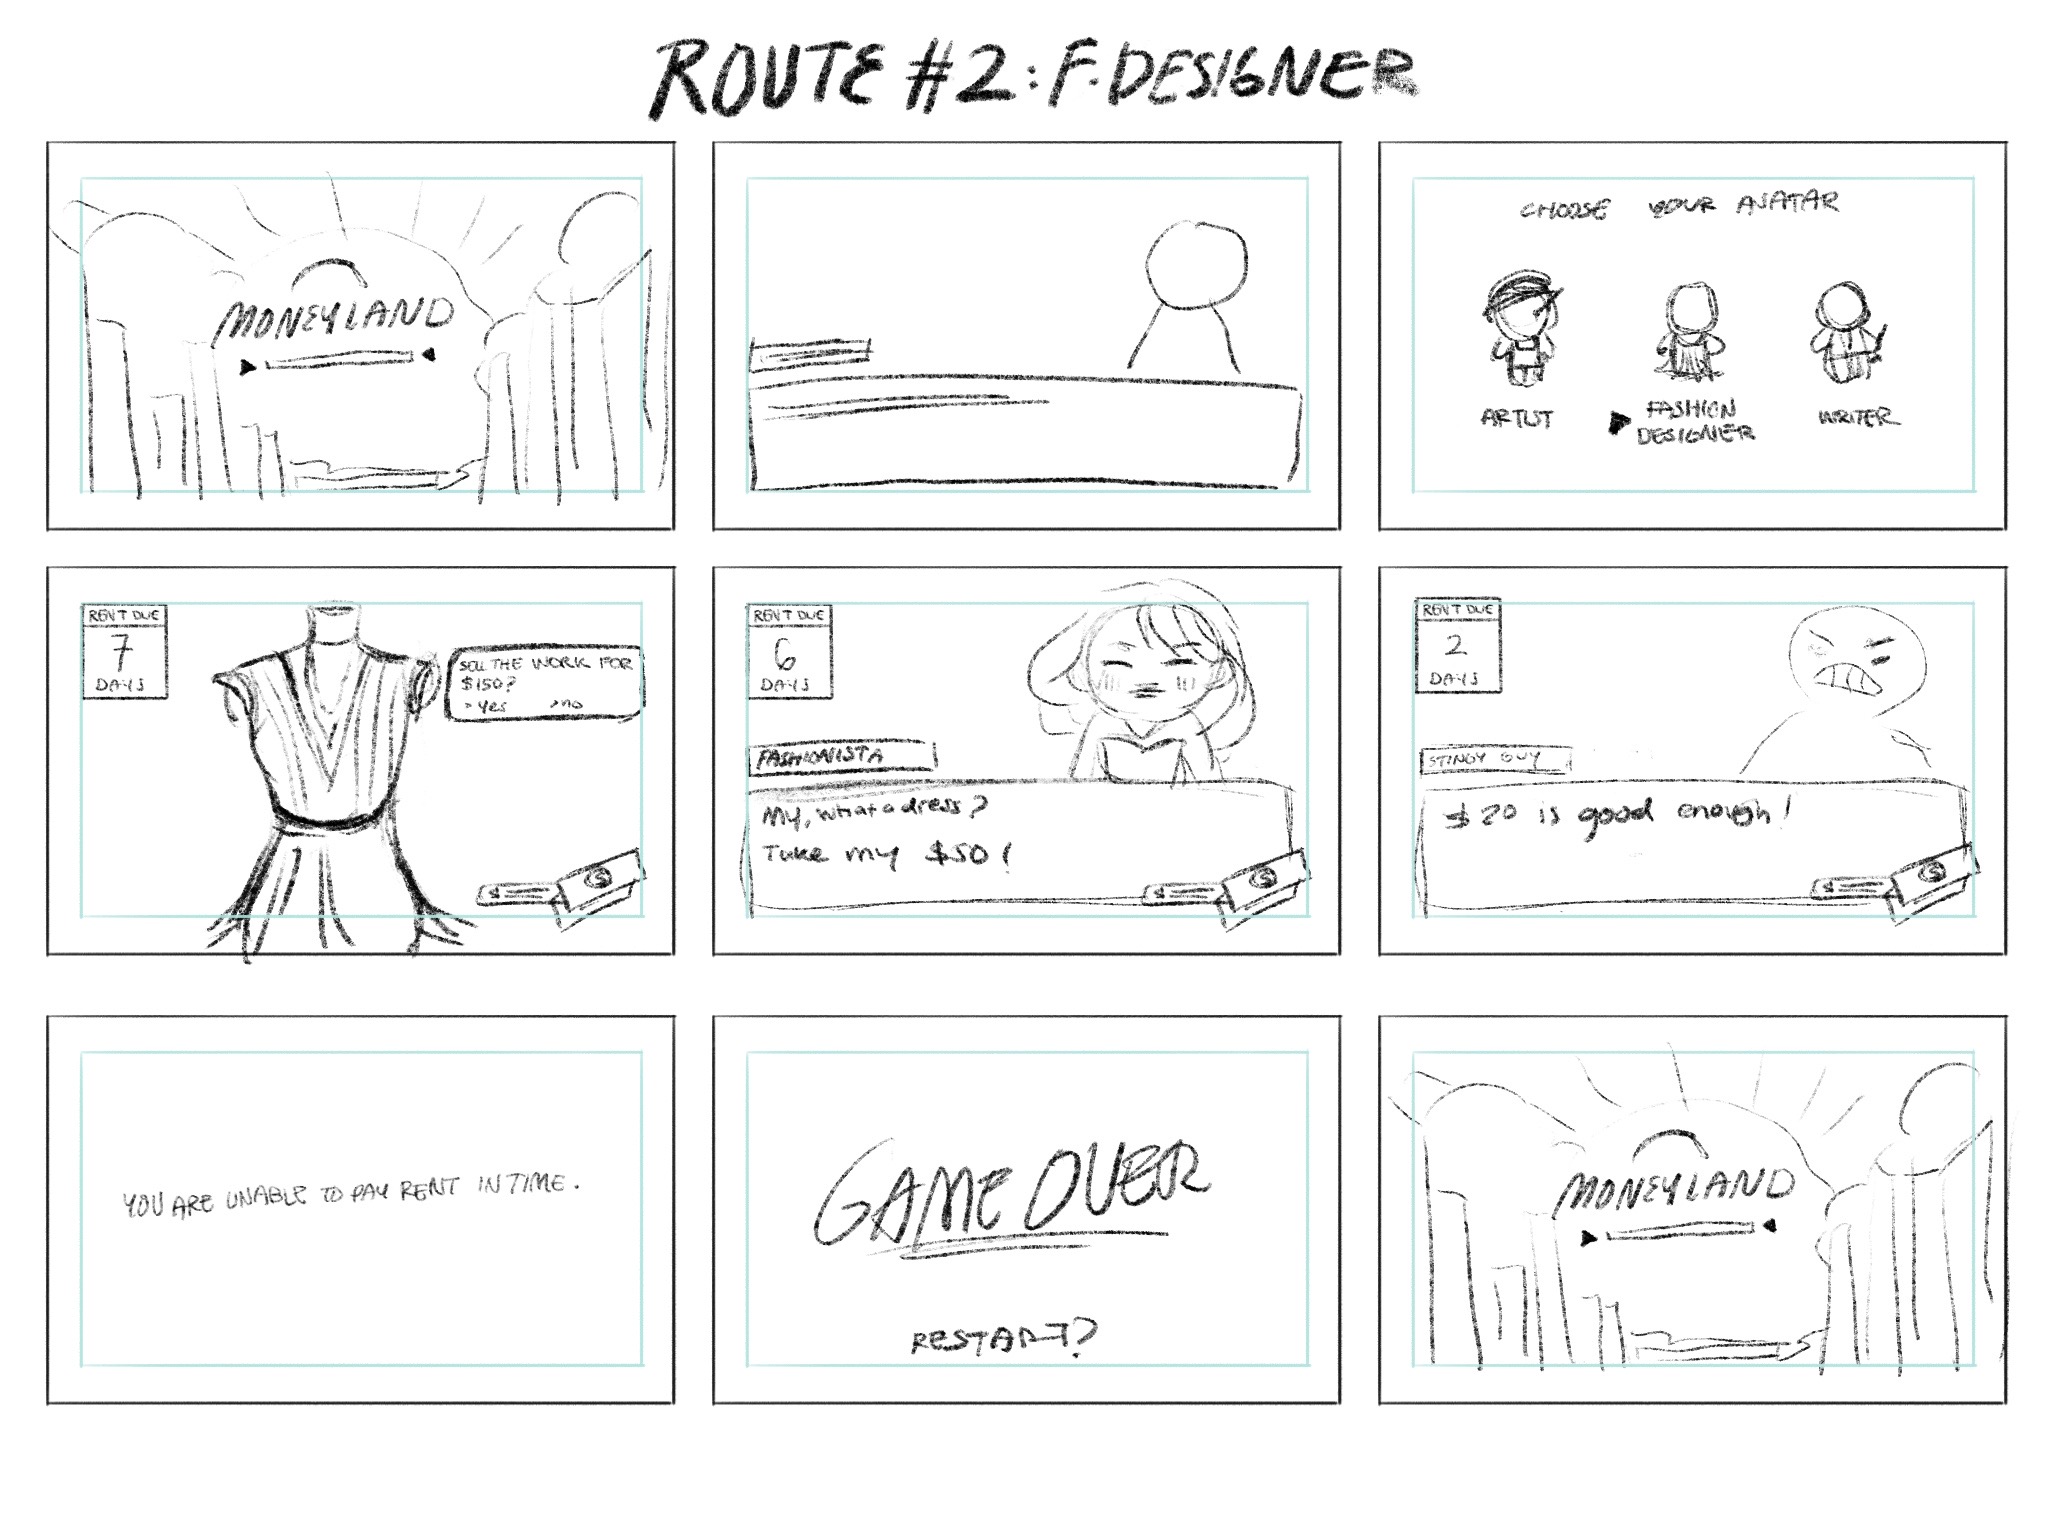 ROUTE #2: F. DESIGNER
MONEYLAND
CHOOSE YOUR AVATAR
ARTIST
FASHION
DESIGNER
WRITER
RENT DUE
7
DAYS
SELL THE WORK FOR
$150?
> Yes >no
RENT DUE
6
DAYS
FASHIONISTA
My, what a dress?
Take my $50!
$
$
RENT DUE
2
DAYS
STINGY GUY
$20 is good enough!
$
$
YOU ARE UNABLE TO PAY RENT IN TIME.
GAME OVER
RESTART?
MONEYLAND